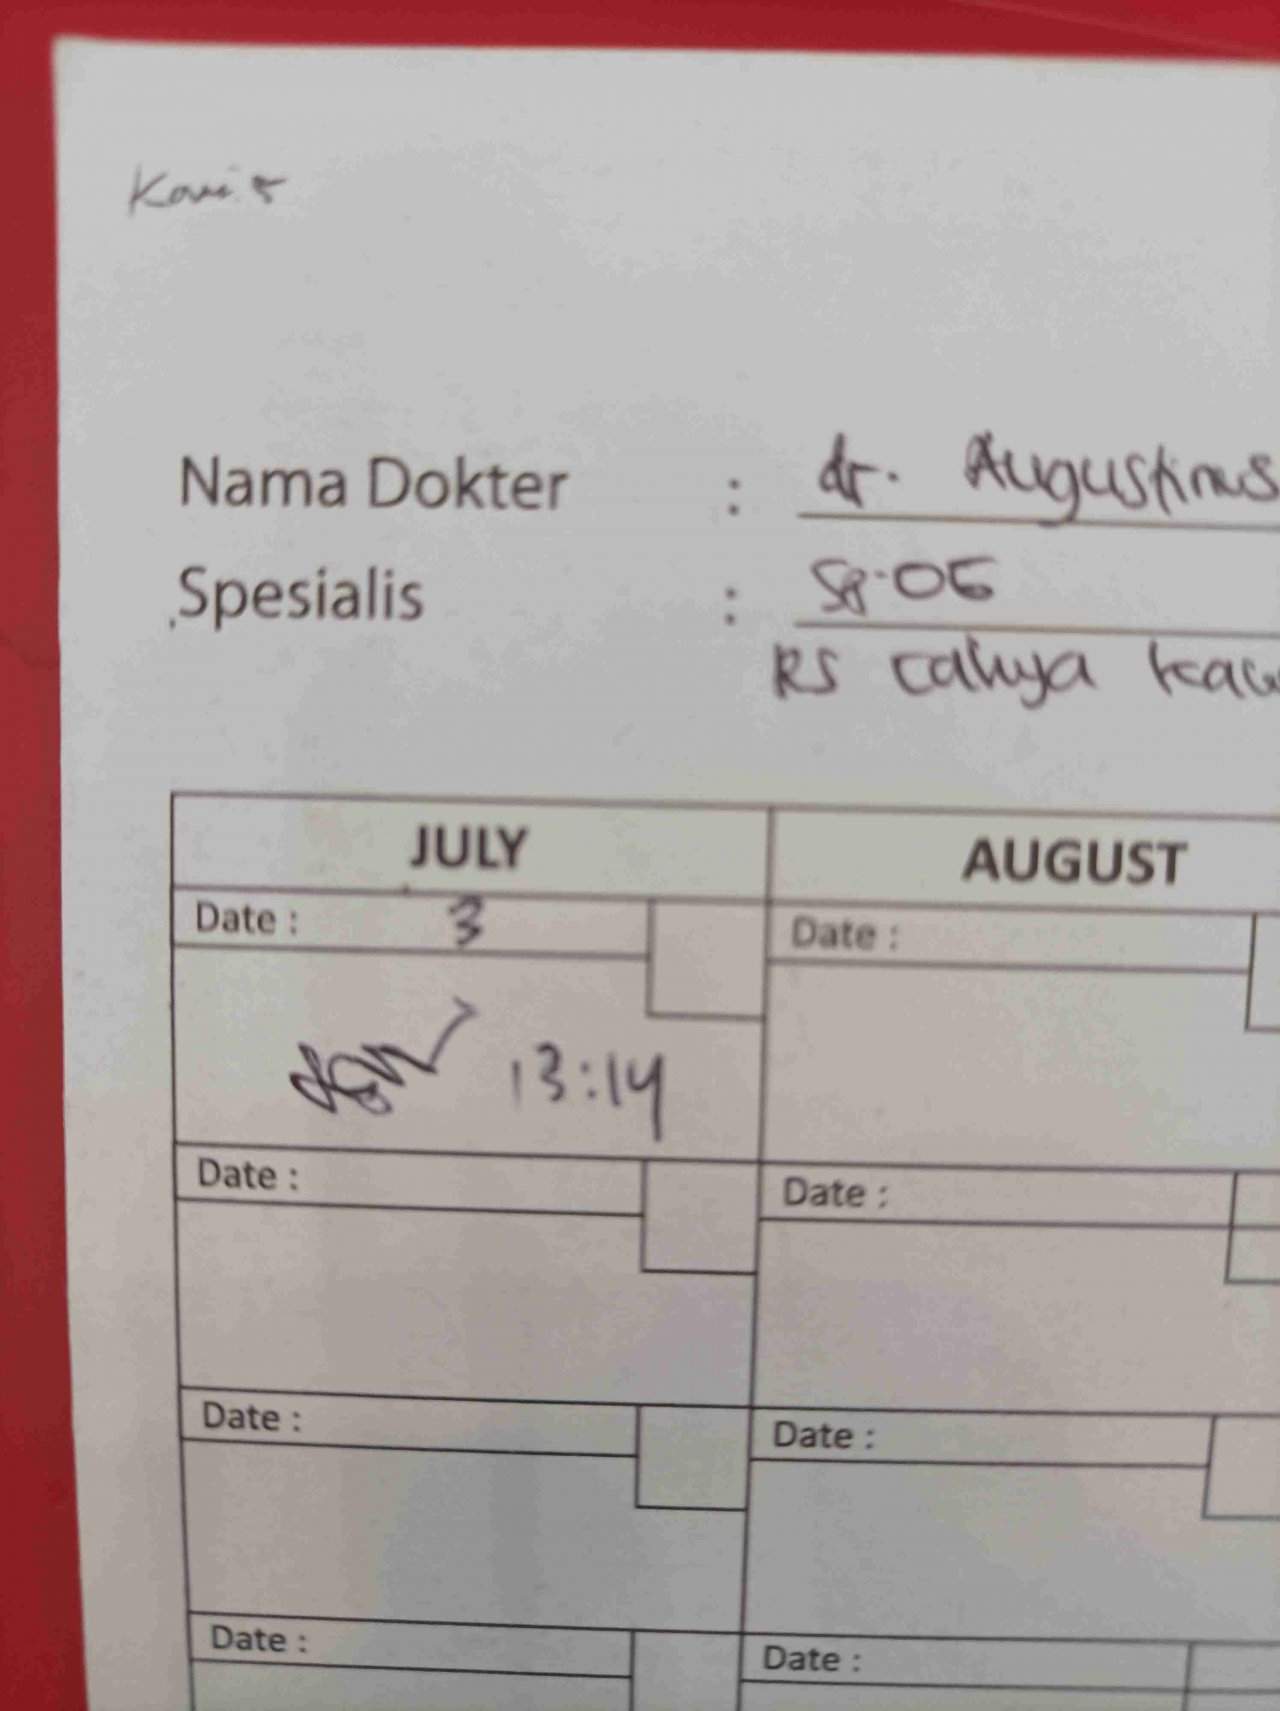 Kamis
Nama Dokter : dr. Augustinus
Spesialis : Sp.OG
RS cahya
JULY AUGUST
Date : 3 Date :
13:14
Date : Date :
Date : Date :
Date : Date :